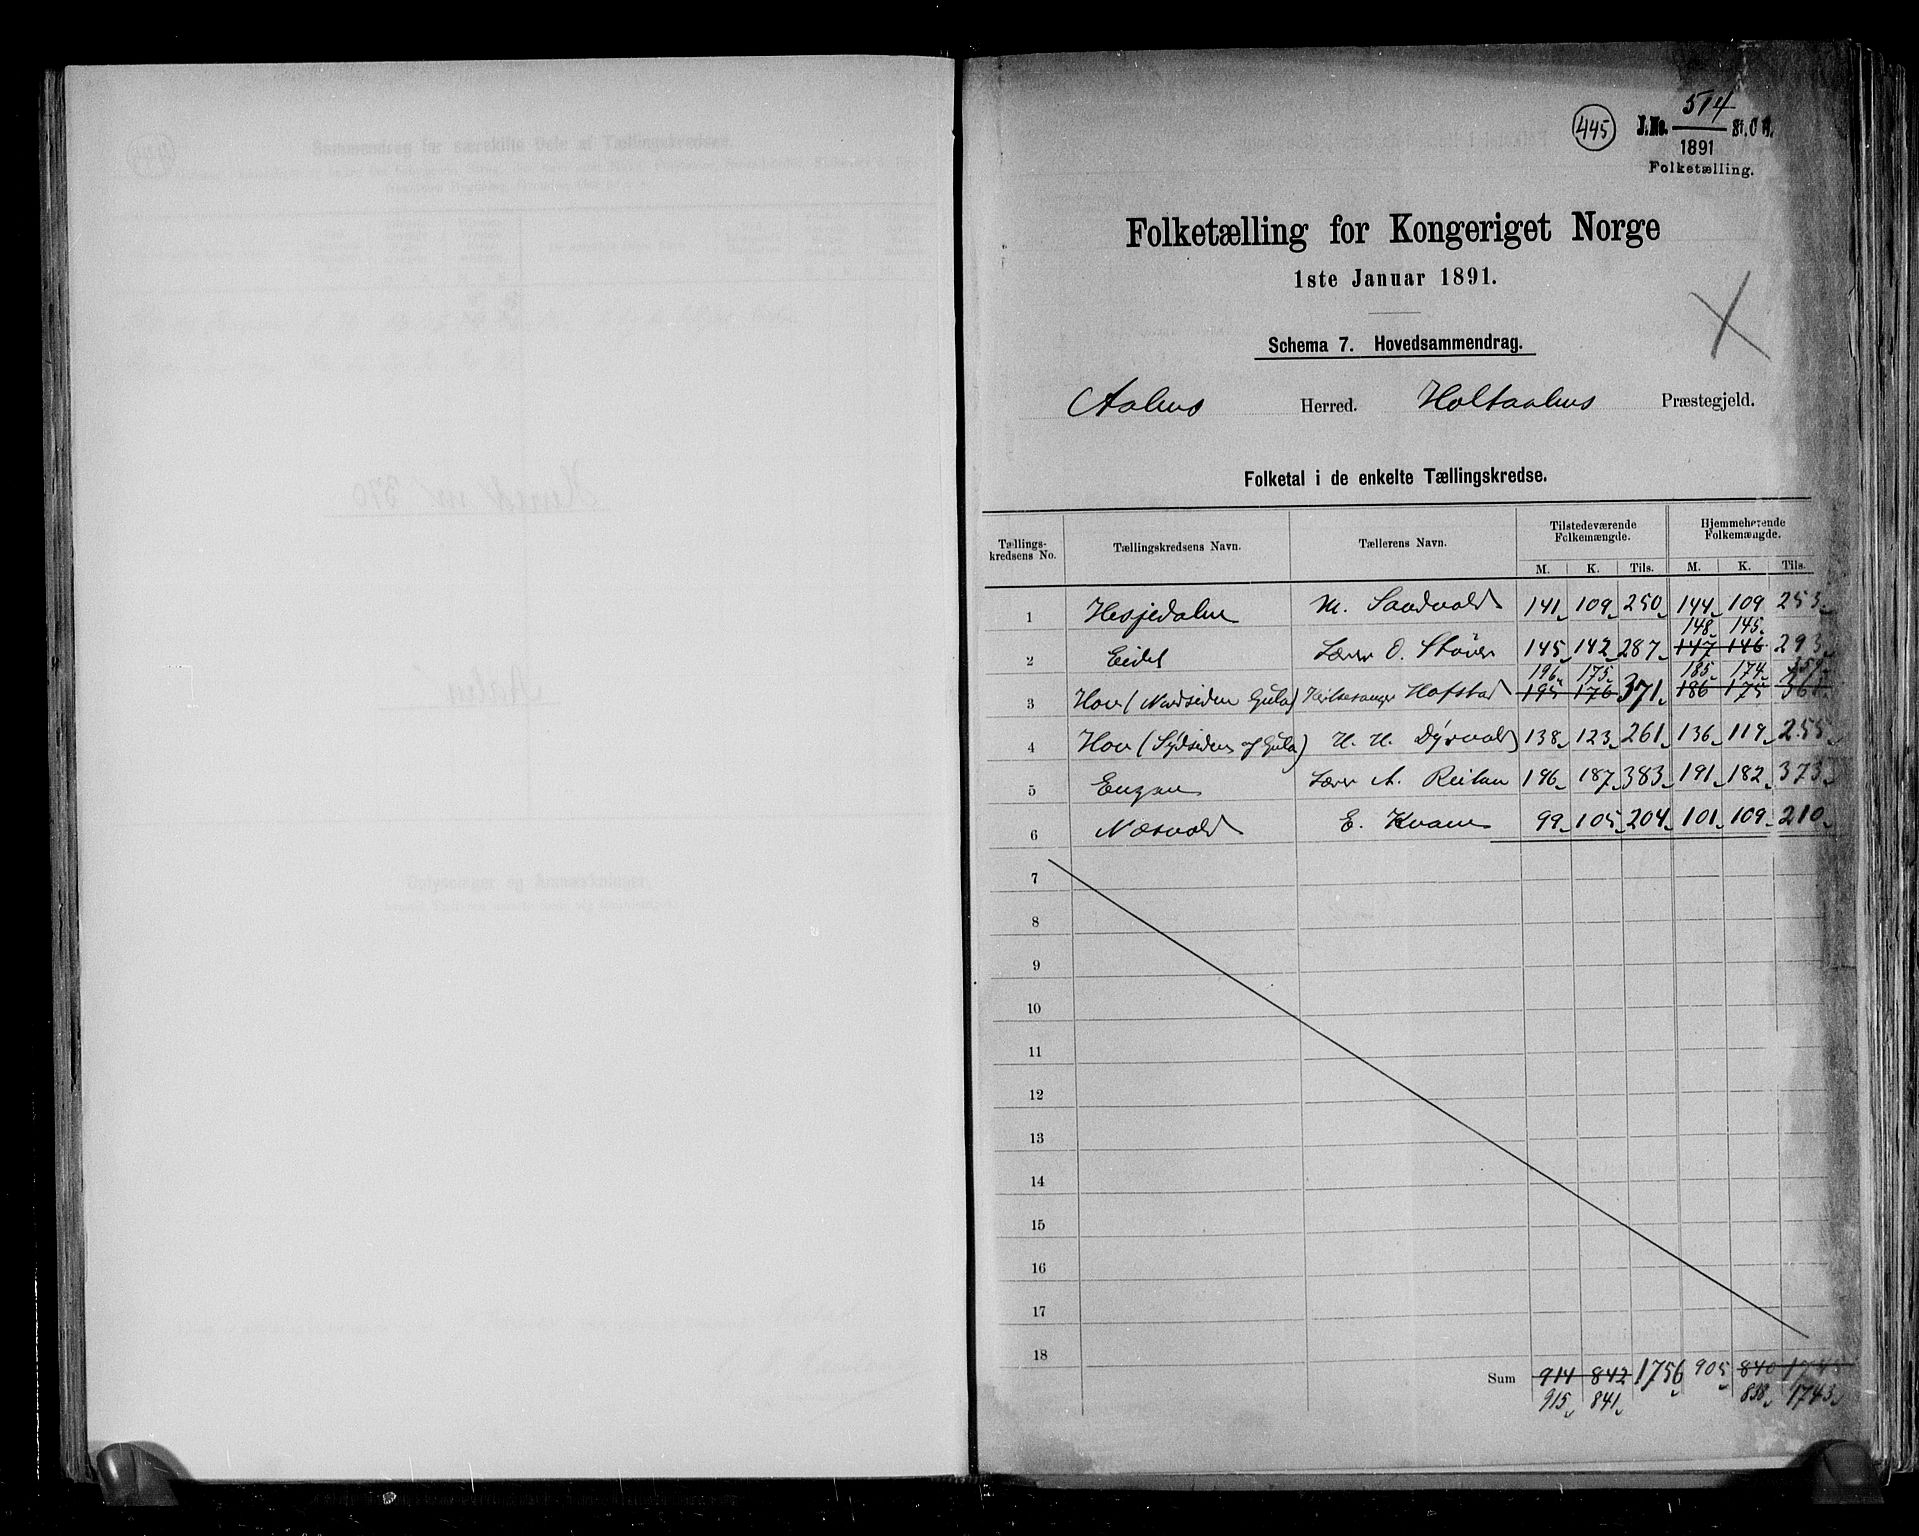 445
J.No. 514 St. C. B.
1891
Folketælling.
Folketælling for Kongeriget Norge
1ste Januar 1891.
Schema 7. Hovedsammendrag.
Aalens Herred. Holtaalens Præstegjeld.
Folketal i de enkelte Tællingskredse.
Tællings-kredsens No. Tællingskredsens Navn. Tællerens Navn. Tilstedeværende Folkemængde. Hjemmehørende Folkemængde.
M. K. Tils. M. K. Tils.
1 Hesjedalen M. Sandvold 141 109 250 144 109 253
148 145
2 Eidet Lærer O. Støver 145 142 287 147 146 293
196 175 185 174 359
3 Hov (Nordsiden Gula) Kirkesanger Hofstad 195 176 371 186 175 361
4 Hov (Sydsiden af Gula) H. H. Dyrvold 138 123 261 136 119 255
5 Engan Lærer A. Reitan 196 187 383 191 182 373
6 Næsvold E. Kvam 99 105 204 101 109 210
7
8
9
10
11
12
13
14
15
16
17
18
Sum 914 842 1756 905 840
915 841 838 1743